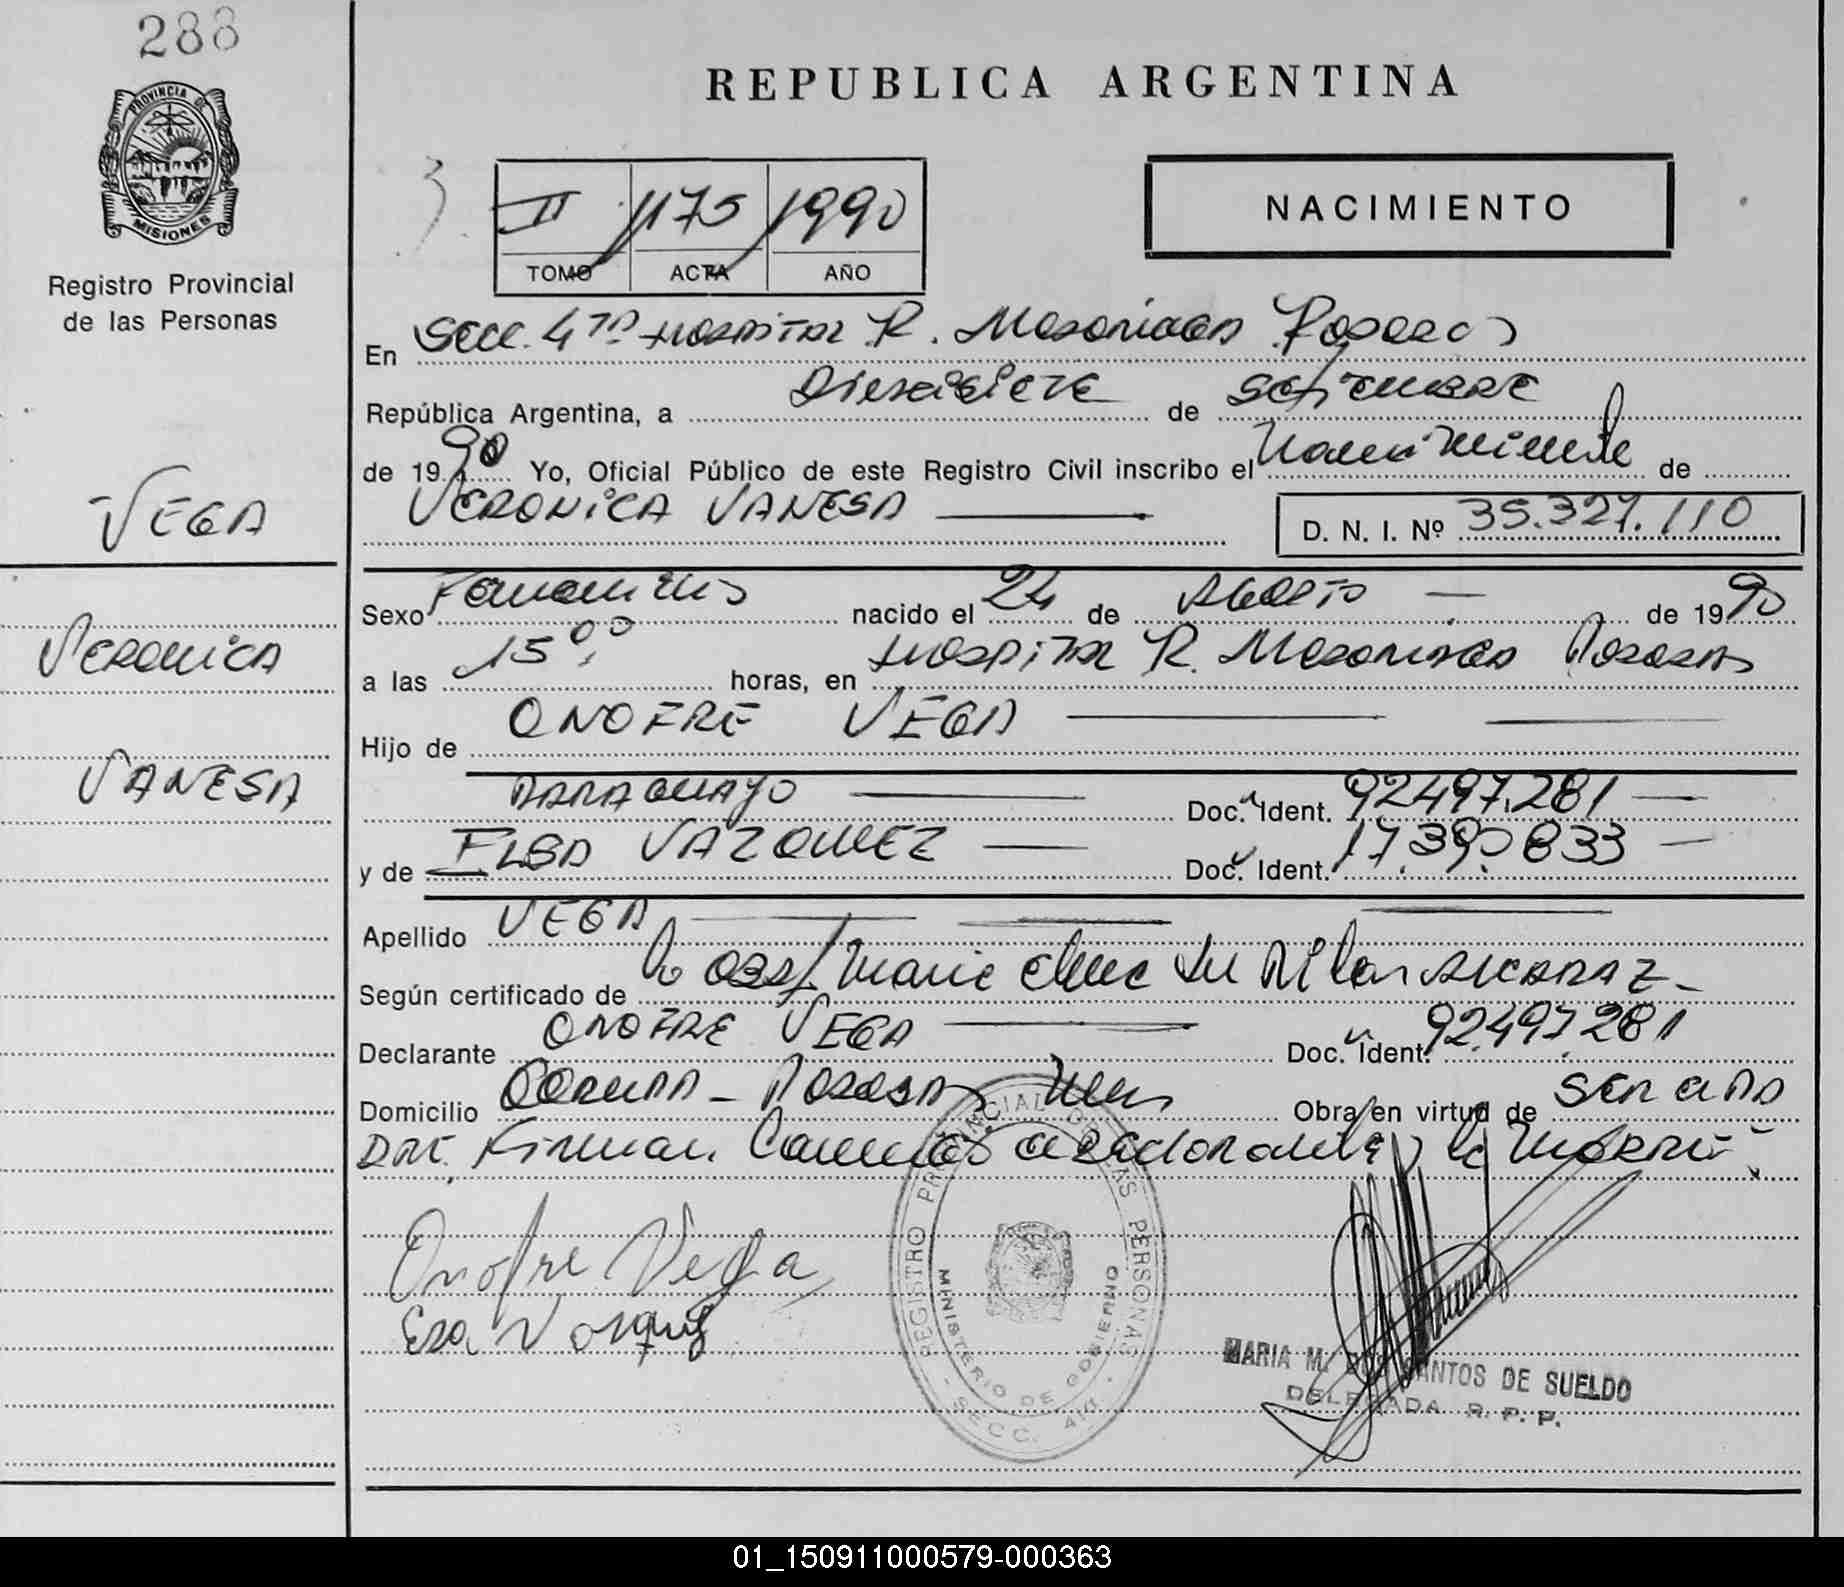 288
PROVINCIA DE
MISIONES
Registro Provincial
de las Personas
VEGA
VERONICA
VANESA
REPUBLICA ARGENTINA
II 1175 1990
TOMO ACTA AÑO
NACIMIENTO
En Secc. 4ta Hospital R. Madariaga Posadas
República Argentina, a Diesisiete de Setiembre
de 1990 Yo, Oficial Público de este Registro Civil inscribo el Nacimiento de
VERONICA VANESA
D. N. I. Nº 35.327.110
Sexo Femenino nacido el 24 de Agosto de 1990
a las 15:00 horas, en Hospital R. Madariaga Posadas
Hijo de ONOFRE VEGA
PARAGUAYO Doc. Ident. 92497.281
y de ELSA VAZQUEZ Doc. Ident. 17.390.833
Apellido VEGA
Según certificado de la Obst. del Pilar ALCARAZ
Declarante ONOFRE VEGA Doc. Ident. 92.497.281
Domicilio Posadas Obra en virtud de
Firman la madre
Onofre Vega
REGISTRO PROVINCIAL DE LAS PERSONAS
MINISTERIO DE GOBIERNO
SECC. 4ta
MARIA M. DOS SANTOS DE SUELDO
DELEGADA R. P. P.
01_150911000579-000363